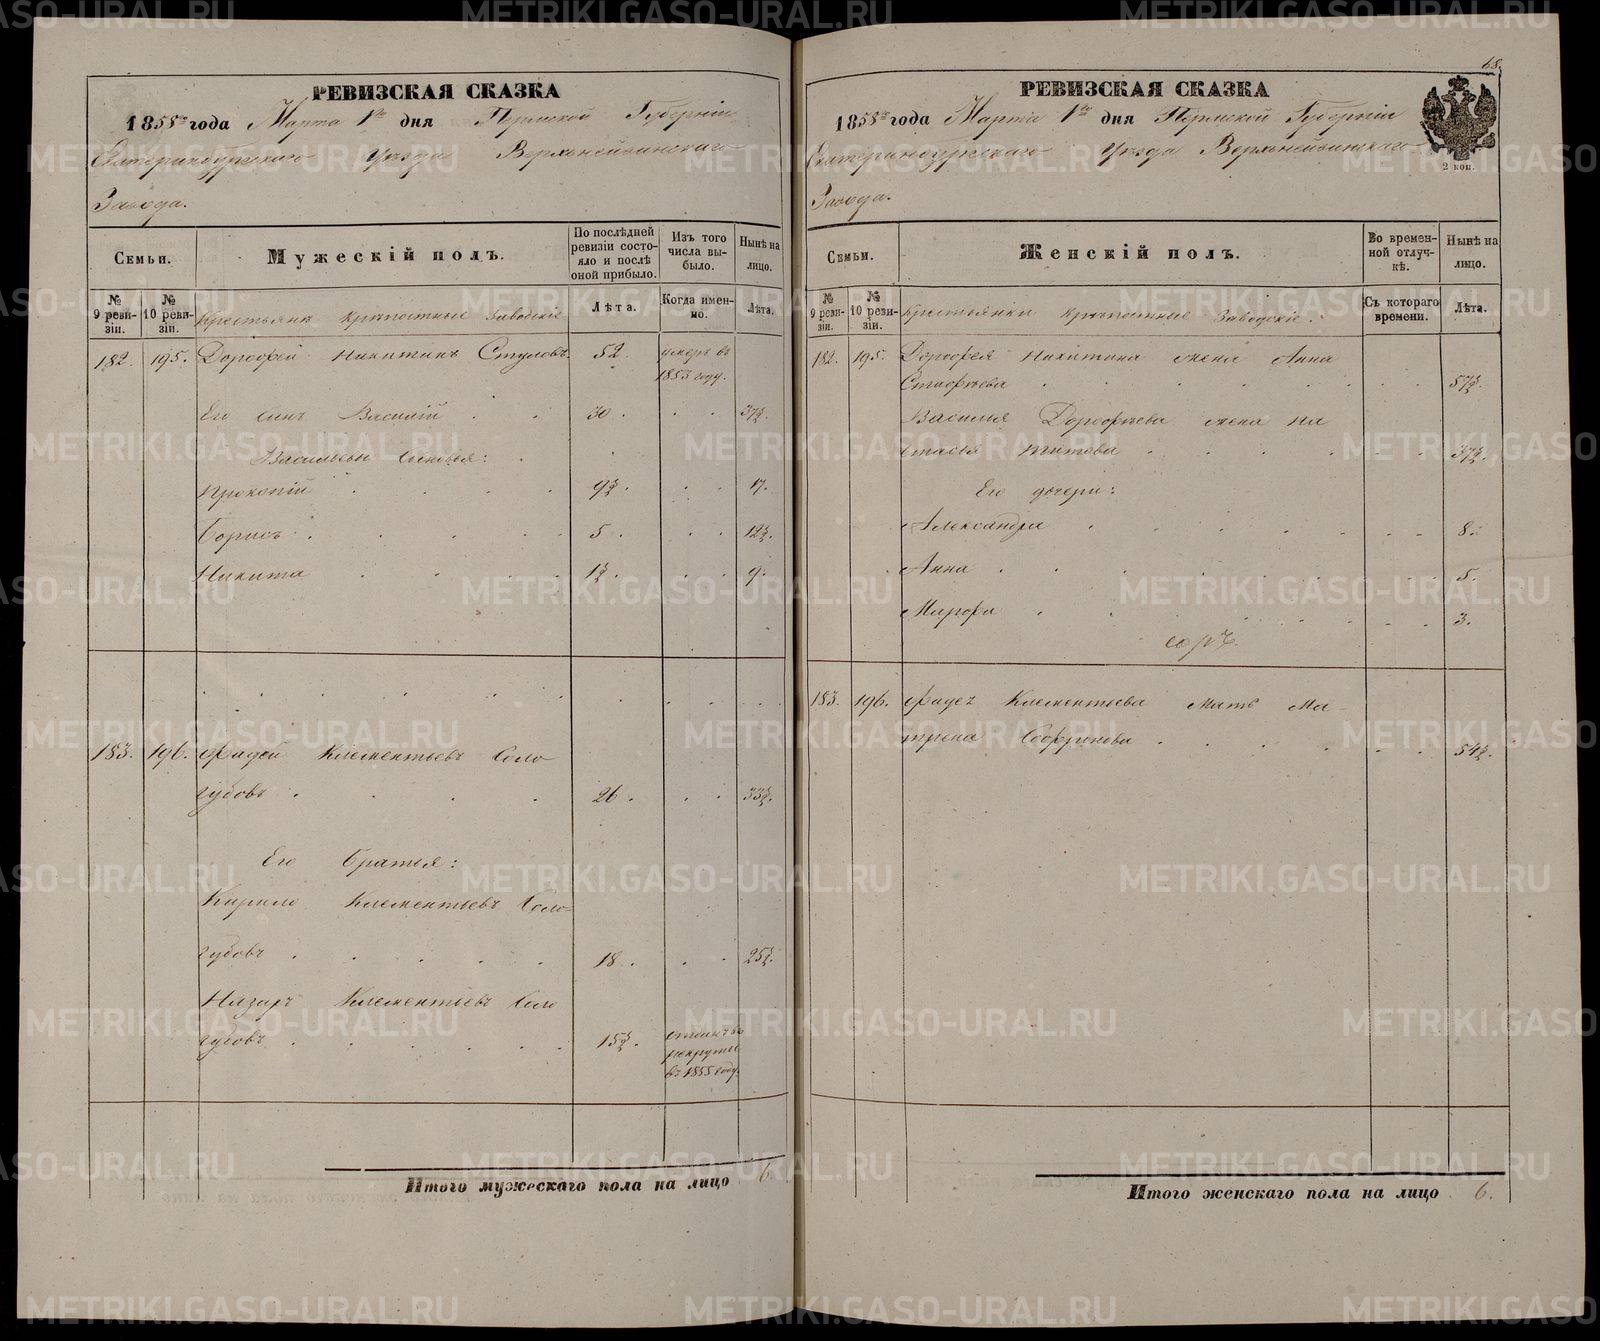 РЕВИЗСКАЯ СКАЗКА
1858го года Марта 1го дня Пермской Губерніи
Екатеринбургскаго Уѣзда Верхнейвинскаго
Завода.
Семьи.
Мужескій полъ.
По послѣдней ревизіи состояло и послѣ оной прибыло.
Изъ того числа выбыло.
Нынѣ на лицо.
№ 9 ревизіи.
№ 10 ревизіи.
Крестьяне крѣпостные Заводскіе
Лѣта.
Когда именно.
Лѣта.
182. 195. Дорофей Никитинъ Стуловъ 52. умеръ въ
1853 году.
Его сынъ Василій 30. 37½.
Васильевы сыновья:
Прокопій 9½. 17.
Борисъ 5. 12½.
Никита 1½. 9.
183. 196. Фадей Климентьевъ Соло
губовъ 26. 33½.
Его братья:
Кирило Климентьевъ Соло-
губовъ 18. 25½.
Назаръ Климентьевъ Соло
губовъ 15½. отданъ въ
рекруты
въ 1855 году.
Итого мужескаго пола на лицо 6.
68.
РЕВИЗСКАЯ СКАЗКА
1858го года Марта 1го дня Пермской Губерніи
Екатеринбургскаго Уѣзда Верхнейвинскаго
Завода.
2 коп.
Семьи.
Женскій полъ.
Во временной отлучкѣ.
Нынѣ на лицо.
№ 9 ревизіи.
№ 10 ревизіи.
Крестьянки крѣпостные Заводскіе.
Съ котораго времени.
Лѣта.
182. 195. Дорофея Никитина жена Анна
57½.
Василья Дорофеева жена На
стасья Титова 37½.
Его дочери:
Александра 8.
Анна 5.
Марфа 3.
183. 196. Фадея Климентьева мать Ма-
трена Софронова 54½.
Итого женскаго пола на лицо 6.
METRIKI.GASO-URAL.RU